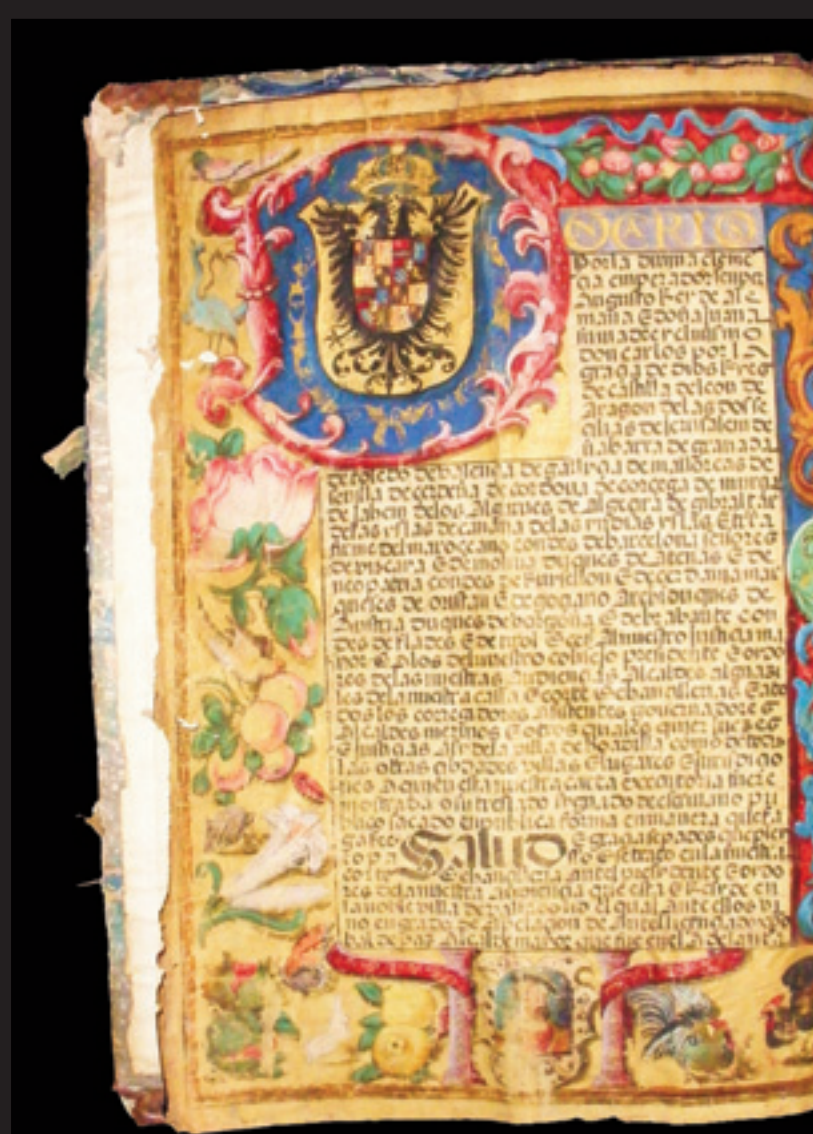 por la divina cleme
cia emperador semper
augusto Rey de ale
mana E doña juana
su madre e el mismo
don carlos por la
gracia de dios Reyes
de castilla de leon de
aragon de las dos se
cilias de jerusalem de
nabarra de granada
de toledo de balencia de galizia de mallorcas de
sevilla de cerdeña de cordova de corcega de murcia
de jahem de los algarves de algezira de gibraltar
de las yslas de canaria de las yndias yslas E tierra
firme del mar oceano condes de barcelona señores
de vizcaya E de molina duques de atenas E de
neopatria condes de Ruisellon E de cerdania mar
queses de oristan E de gociano archiduques de
austria duques de borgoña E de brabante con
des de flandes E de tirol E cet. Al nuestro justicia ma
yor E a los del nuestro consejo presidente E oydo
res de las nuestras audiencias alcaldes alguazi
les de la nuestra casa E corte E chancillerias E a to
dos los corregidores asistentes governadores
alcaldes merinos E otros quales quier juezes
E justicias asi de la villa de como de todas
las otras cibdades villas E lugares
a quien esta nuestra carta executoria fuere
mostrada o su treslado signado de escrivano pu
blico sacado en publica forma en manera que fa
ga fee Salud E gracia sepades que pleyto
en la nuestra
corte E chancilleria ante el presidente E oydo
res de la nuestra audiencia que esta E Reside en
la noble villa de el qual ante ellos vi
no en grado de apelacion de ante